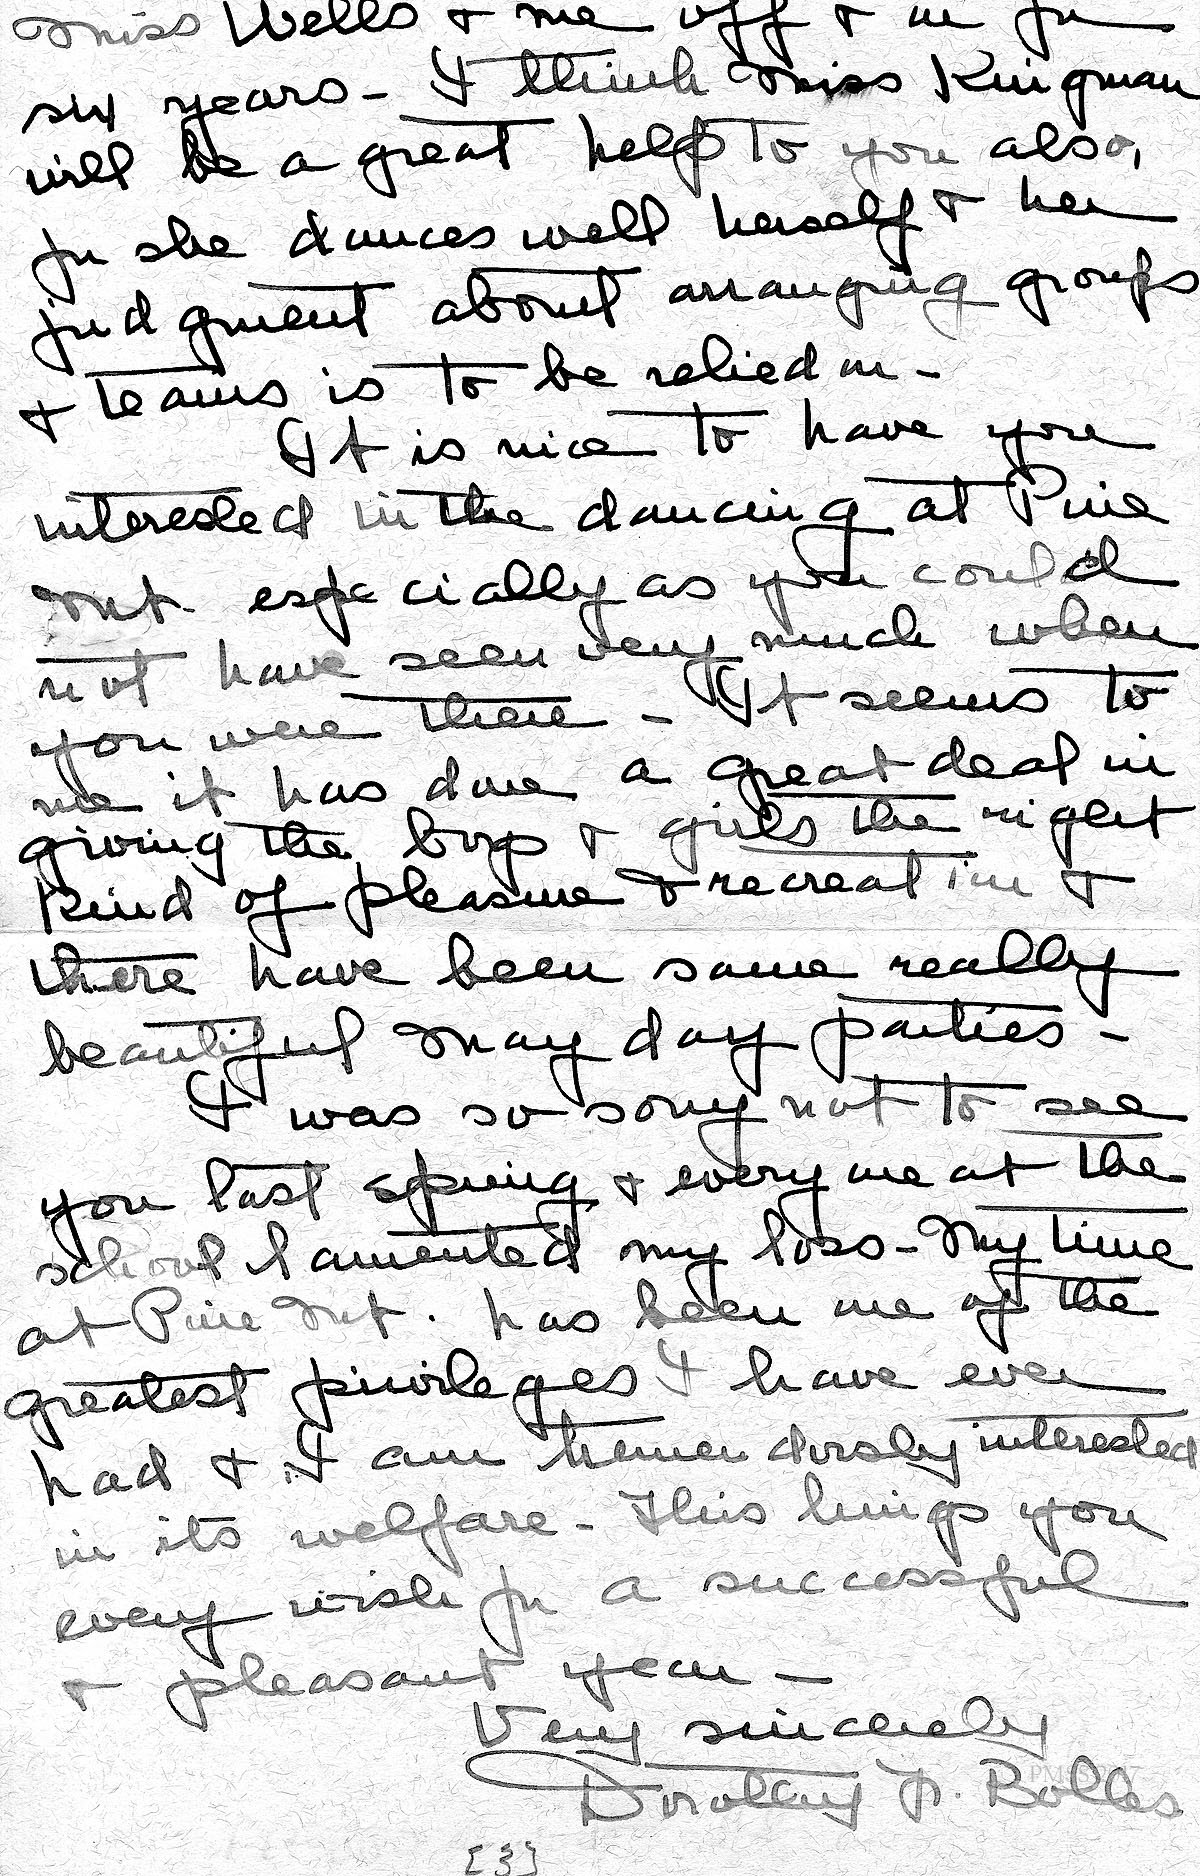 Miss Wells & me off & on for
six years - I think Miss Kingman
will be a great help to you also,
for she dances well herself & her
judgment about arranging groups
& teams is to be relied on -
It is nice to have you
interested in the dancing at Pine
Mt. especially as you could
not have seen very much when
you were there - It seems to
me it has done a great deal in
giving the boys & girls the right
kind of pleasure & recreation &
there have been some really
beautiful May day parties -
I was so sorry not to see
you last spring & every one at the
school lamented my loss - My time
at Pine Mt. has been one of the
greatest privileges I have ever
had & I am tremendously interested
in its welfare - This brings you
every wish for a successful
& pleasant year -
Very sincerely
Dorothy F. Bolles
[3]